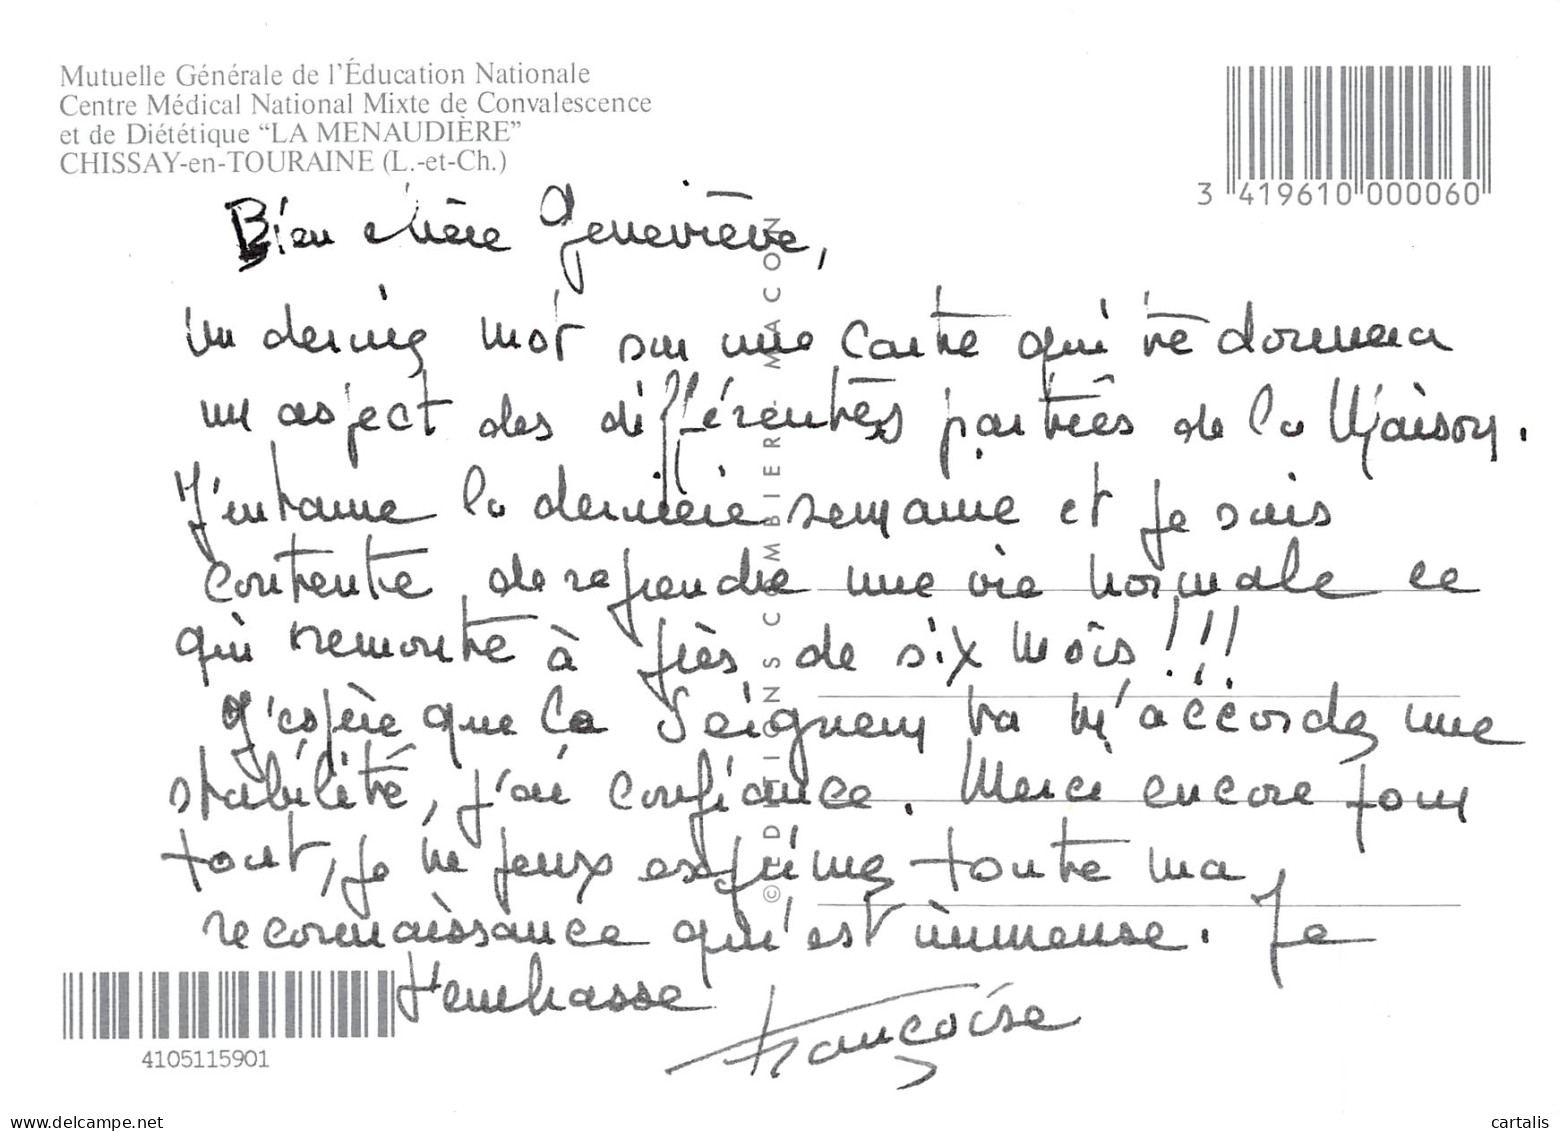 Mutuelle Générale de l'Éducation Nationale
Centre Médical National Mixte de Convalescence
et de Diététique “LA MENAUDIÈRE”
CHISSAY-en-TOURAINE (L.-et-Ch.)
3 419610 000060
Bien chère Geneviève,
un dernier mot sur une carte qui te donnera
un aspect des différentes parties de la Maison.
J'entame la dernière semaine et je suis
contente de reprendre une vie normale ce
qui remonte à près de six mois !!!
J'espère que le Seigneur va m'accorder une
stabilité, j'ai confiance. Merci encore pour
tout, je ne peux exprimer toute ma
reconnaissance qui est immense. Je
t'embrasse
Françoise
© EDITIONS COMBIER MACON
4105115901
www.delcampe.net
cartalis